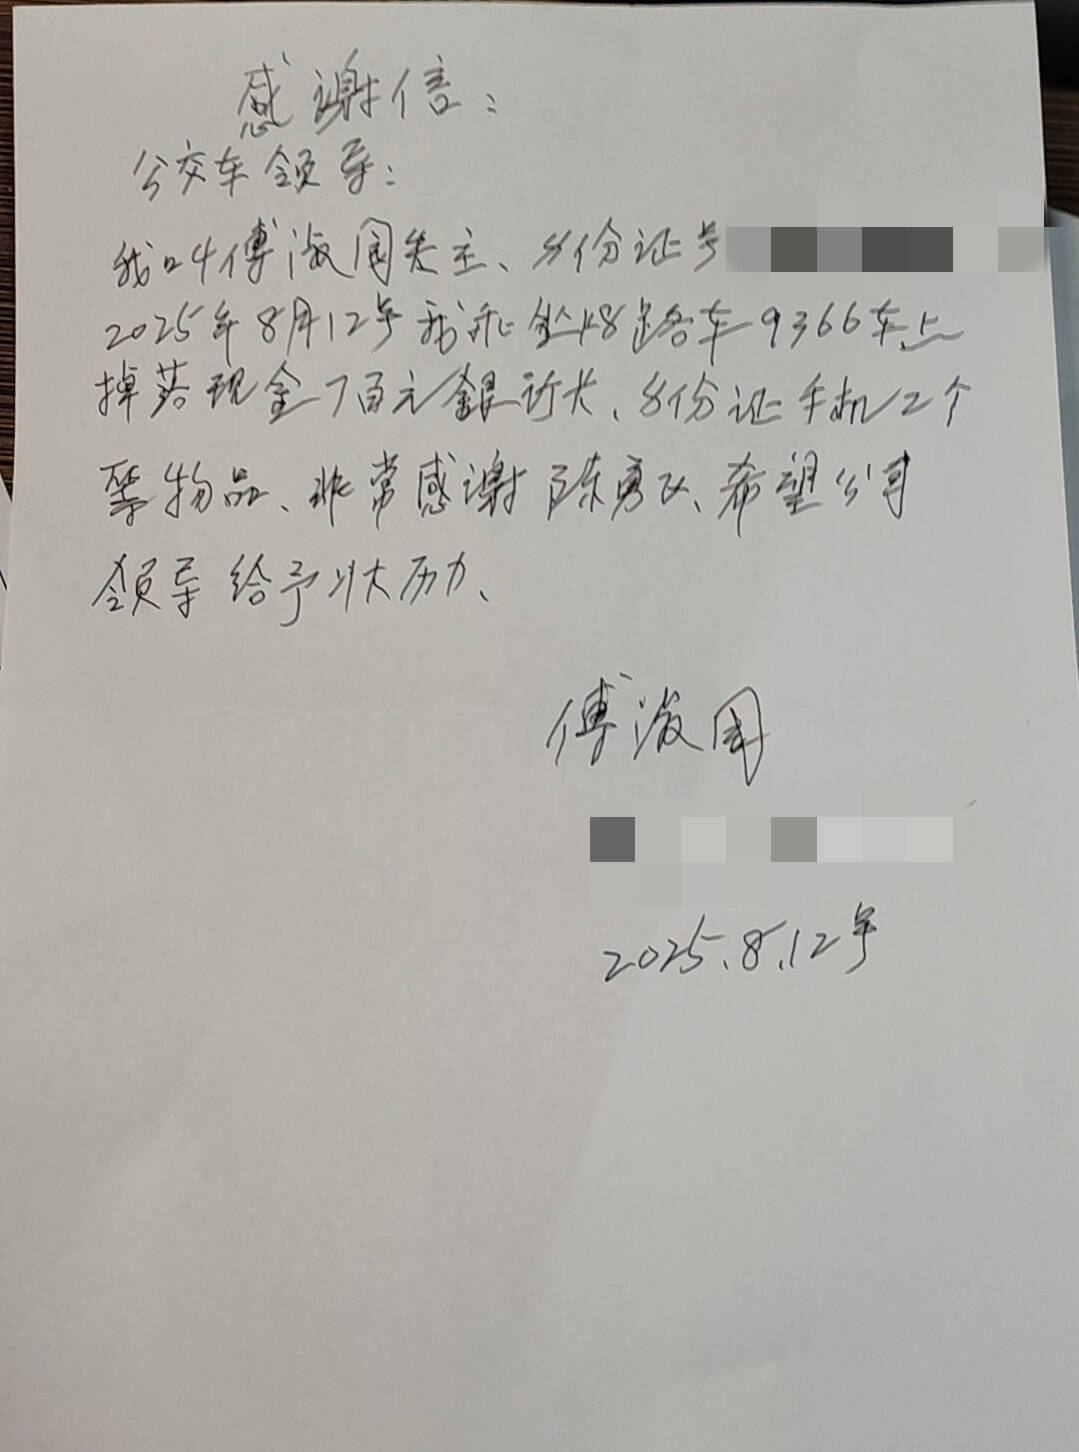 感谢信：
公交车领导：
我叫傅淑国失主、身份证号
2025年8月12号我乘坐48路车9366车上
掉落现金7百元银行卡、身份证手机2个
等物品、非常感谢陈勇、希望公司
领导给予奖励、
傅淑国
2025.8.12号